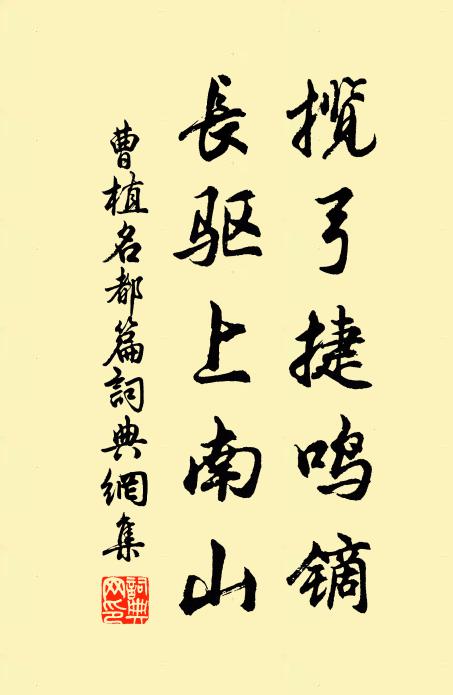 揽弓捷鸣镝
長驱上南山
曹植名都篇詞典網集
詞典網印